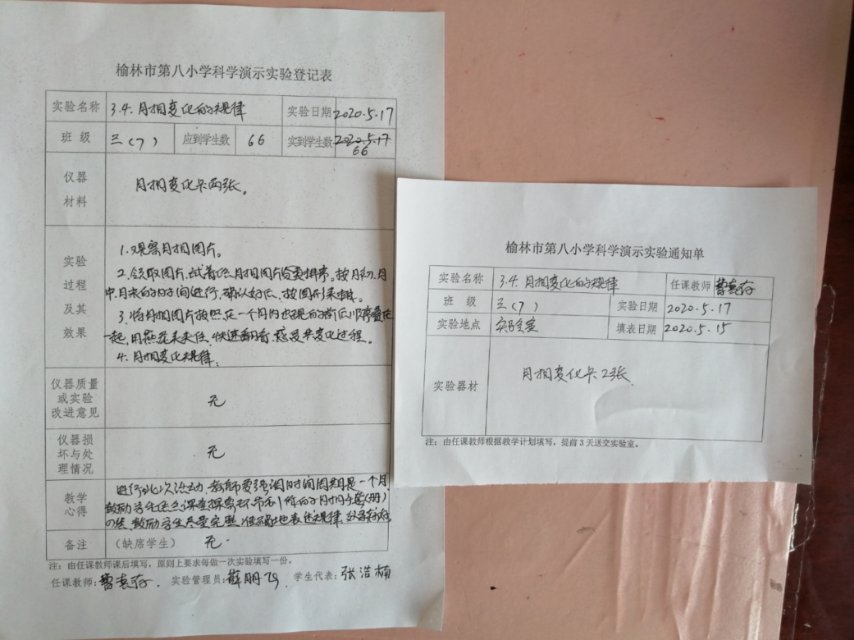 榆林市第八小学科学演示实验登记表
实验名称 3.4.月相变化的规律 实验日期 2020.5.17
班 级 三(7) 应到学生数 66 实到学生数 2020.5.17
66
仪器
材料
月相变化卡两张。
实验
过程
及其
效果
1.观察月相图片。
2.领取图片,试着给月相图片分类排序。按月初、月
中、月末的时间进行,确认好后,按图形来排。
3.将月相图片按照在一个月内出现的前后顺序叠在一
起,用 夹夹住,快速翻看,感受其变化过程。
4.月相变化规律:
仪器质量
或实验
改进意见
无
仪器损
坏与处
理情况
无
教学
心得
进行此次活动,教师要强调时间周期是一个月
鼓励学生
鼓励学生尽量完整、准确地表述规律
备注 (缺席学生) 无.
注:由任课教师课后填写,原则上要求每做一次实验填写一份。
任课教师: 实验管理员: 学生代表:张浩
榆林市第八小学科学演示实验通知单
实验名称 3.4.月相变化的规律 任课教师
班 级 三(7) 实验日期 2020.5.17
实验地点 实验室 填表日期 2020.5.15
实验器材
月相变化卡2张.
注:由任课教师根据教学计划填写,提前3天送交实验室。